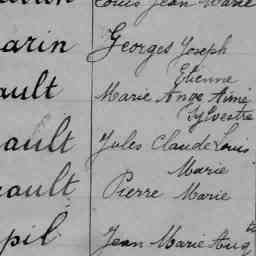 Louis Jean Marie
arin Georges Joseph
Etienne
ault Marie Ange Aimé
Sylvestre
ault Jules Claude Louis
Marie
ault Pierre Marie
pil Jean Marie Aug te